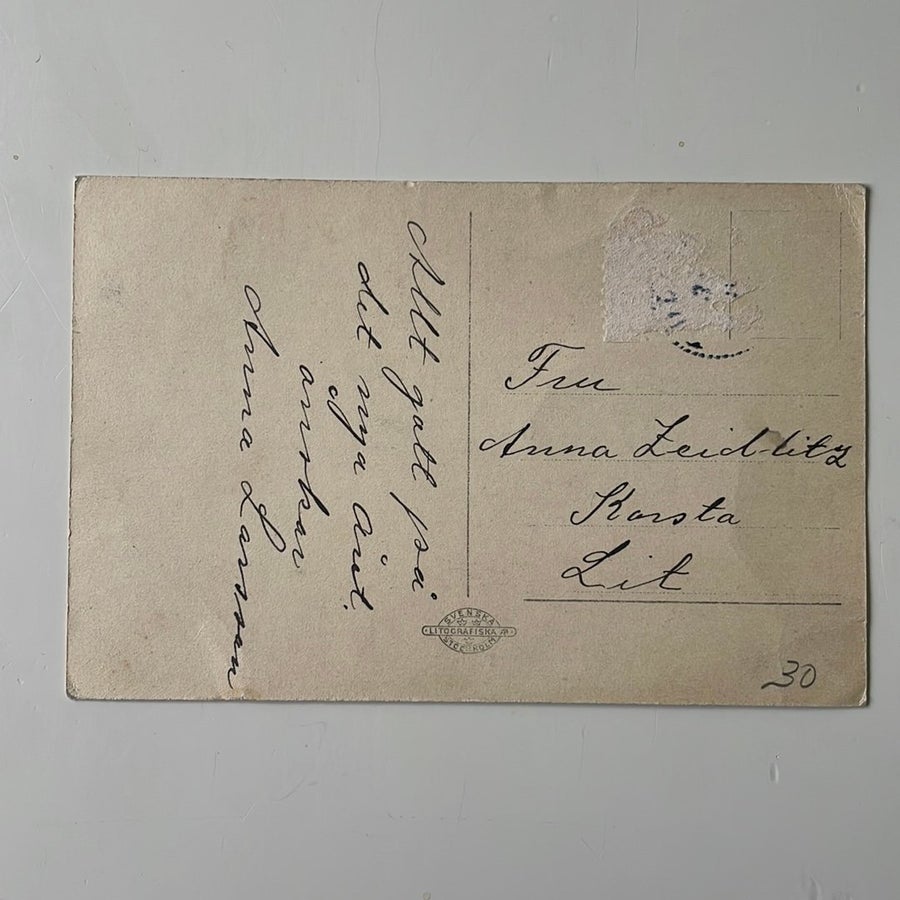 Allt gott på
det nya året.
önskar
Anna Larsson
Fru
Anna Zeidlitz
Korsta
Lit
SVENSKA
LITOGRAFISKA AB
STOCKHOLM
30